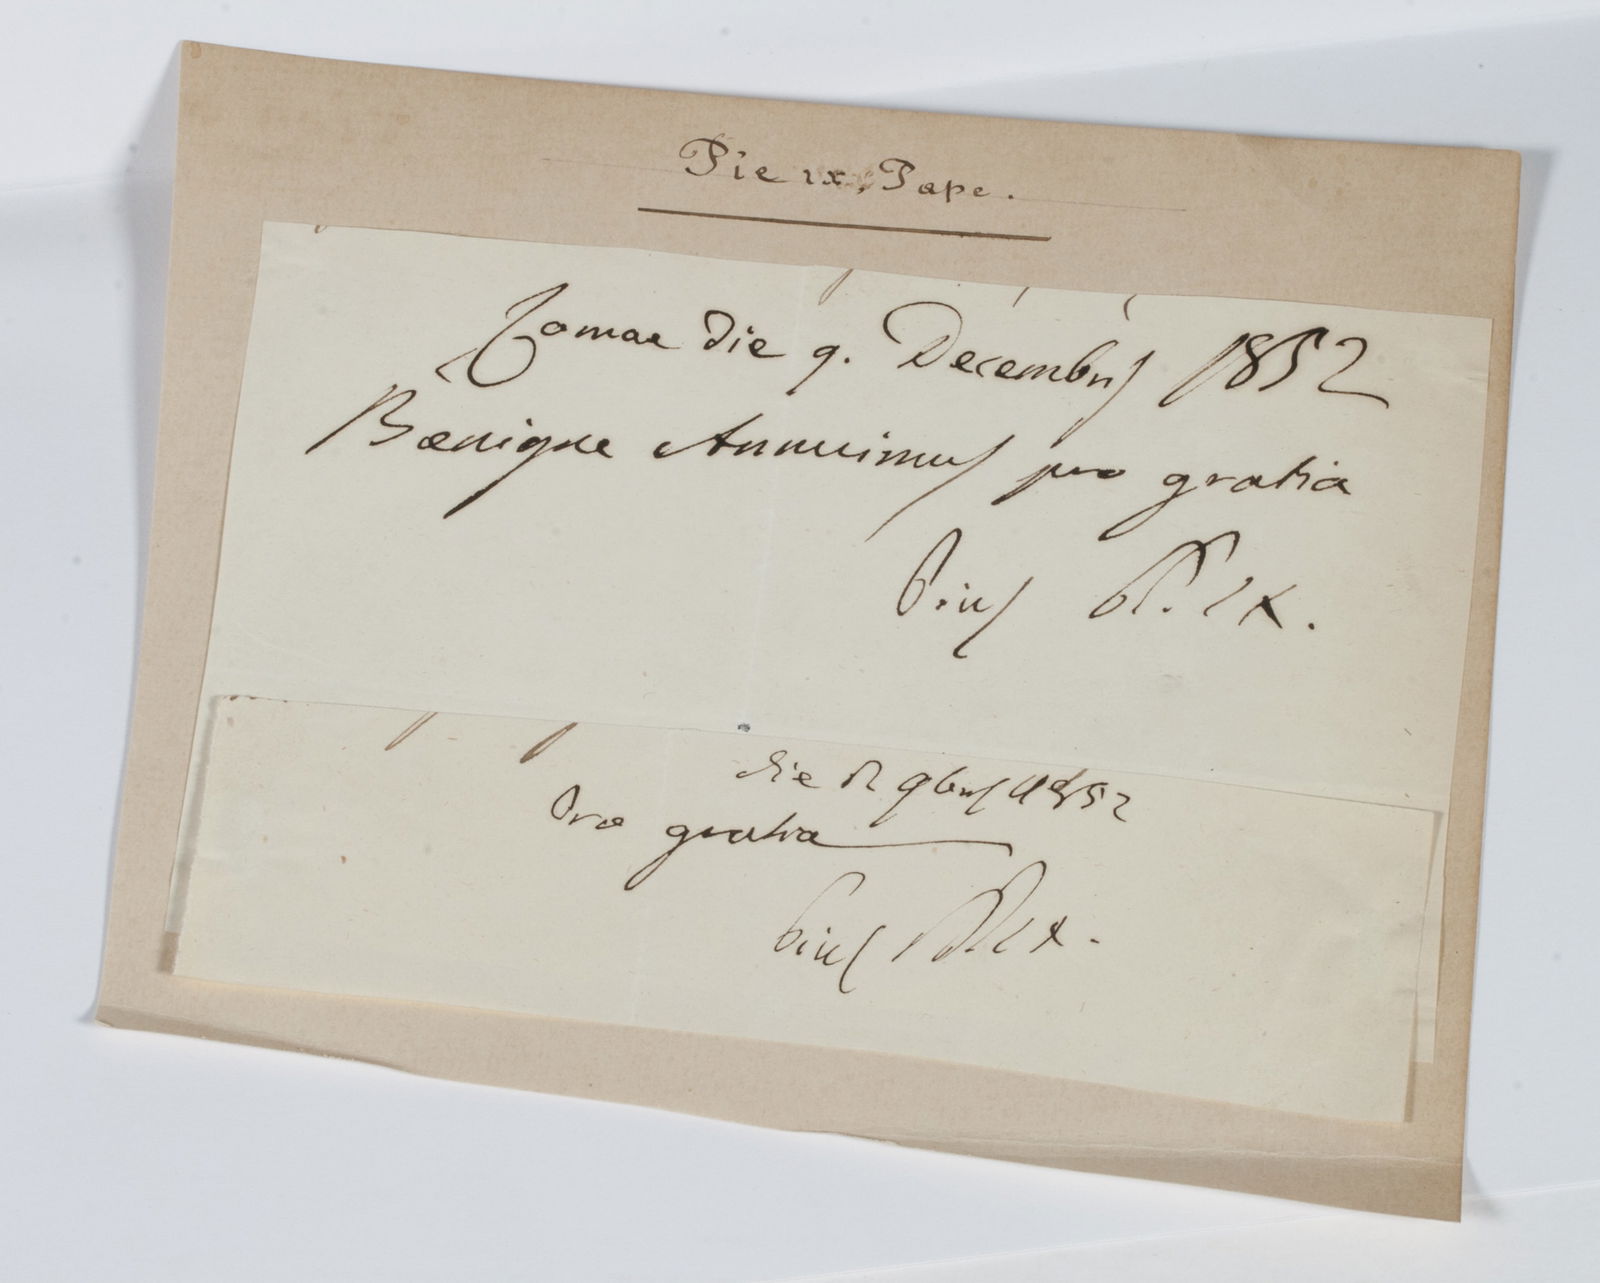 Pie IX, Pape.
Romae die 9. Decembris 1852
Benigne Annuimus pro gratia
Pius PP. IX.
die 9bris 1852
Pro gratia
Pius PP. IX.